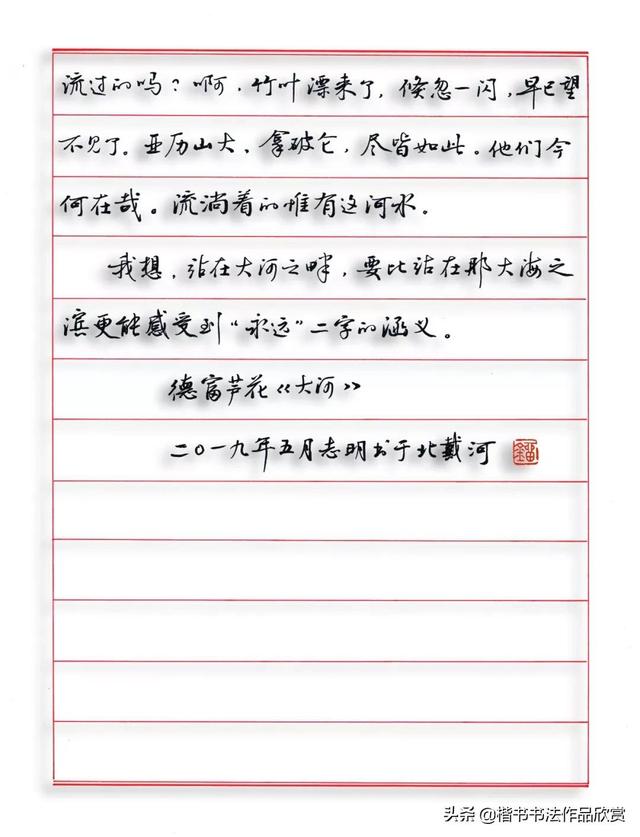 流过的吗？啊，竹叶漂来了，倏忽一闪，早已望
不见了。亚历山大、拿破仑，尽皆如此。他们今
何在哉。流淌着的惟有这河水。
我想，站在大河之畔，要比站在那大海之
滨更能感受到“永远”二字的涵义。
德富芦花《大河》
二〇一九年五月志明书于北戴河
头条@楷书书法作品欣赏